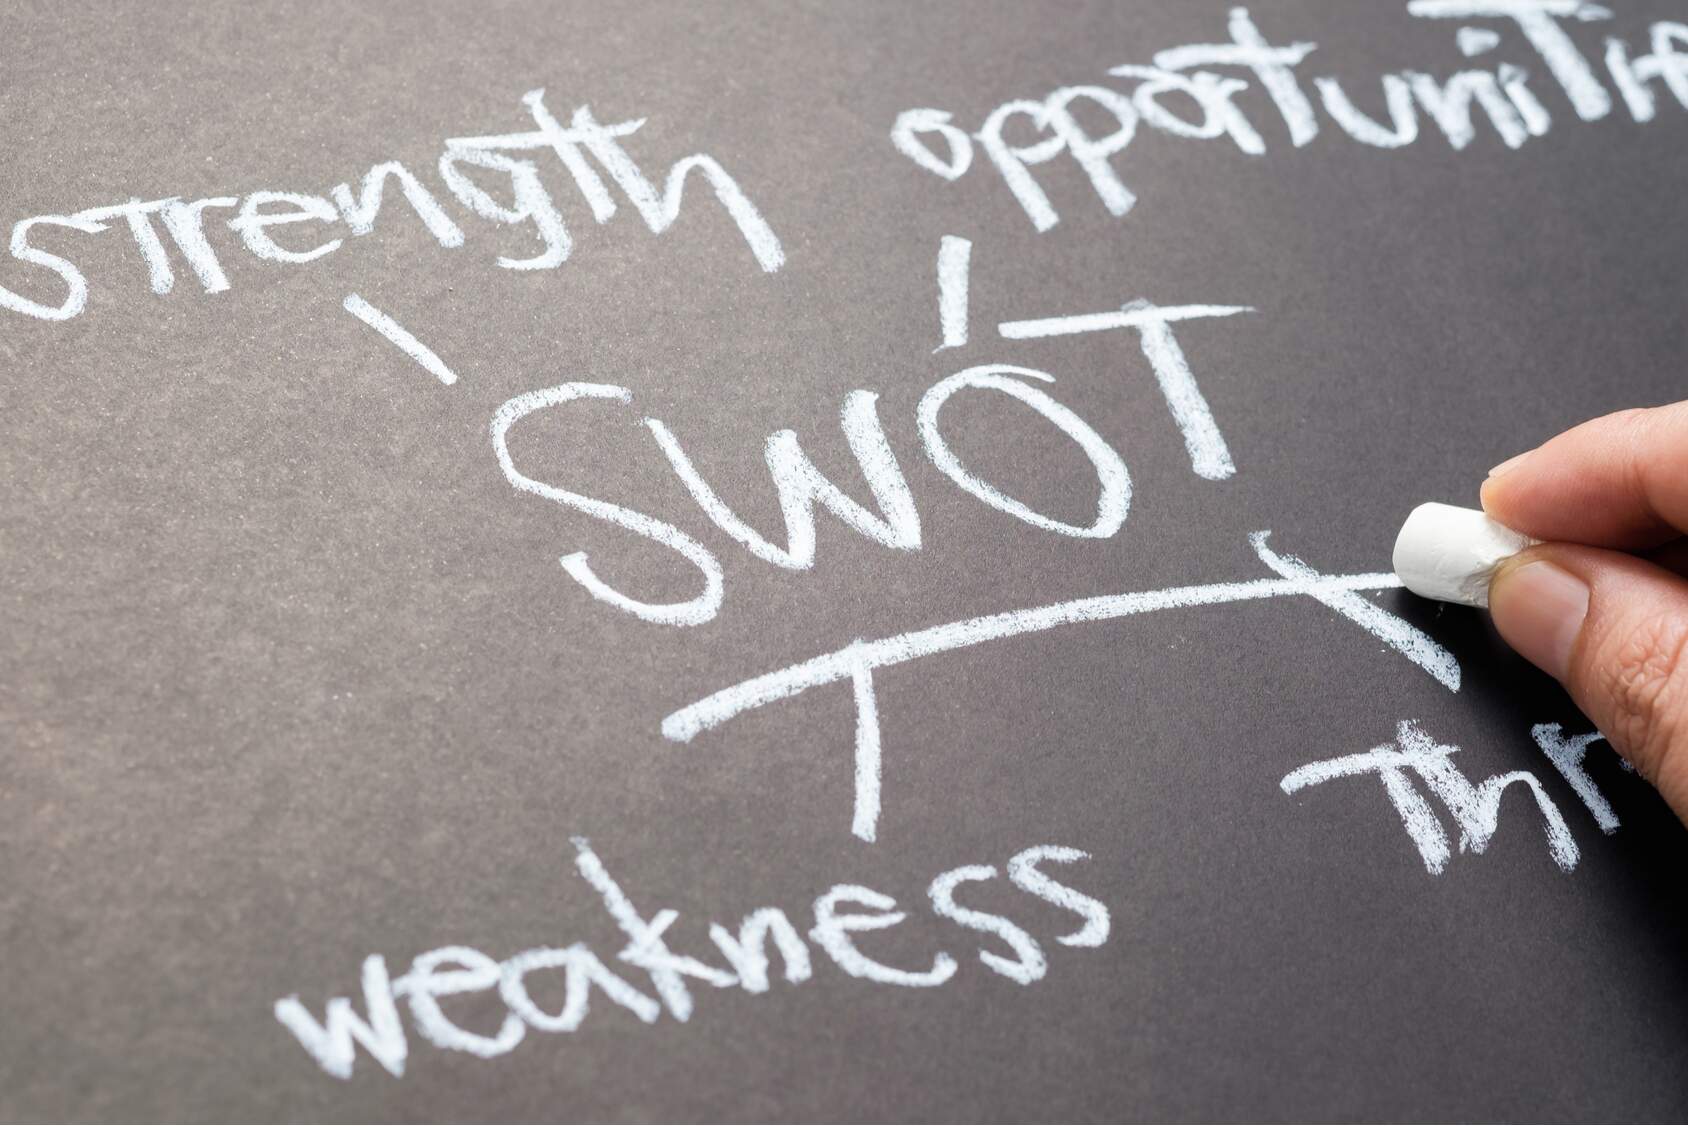 strength
opportunitie
SWOT
weakness
thr